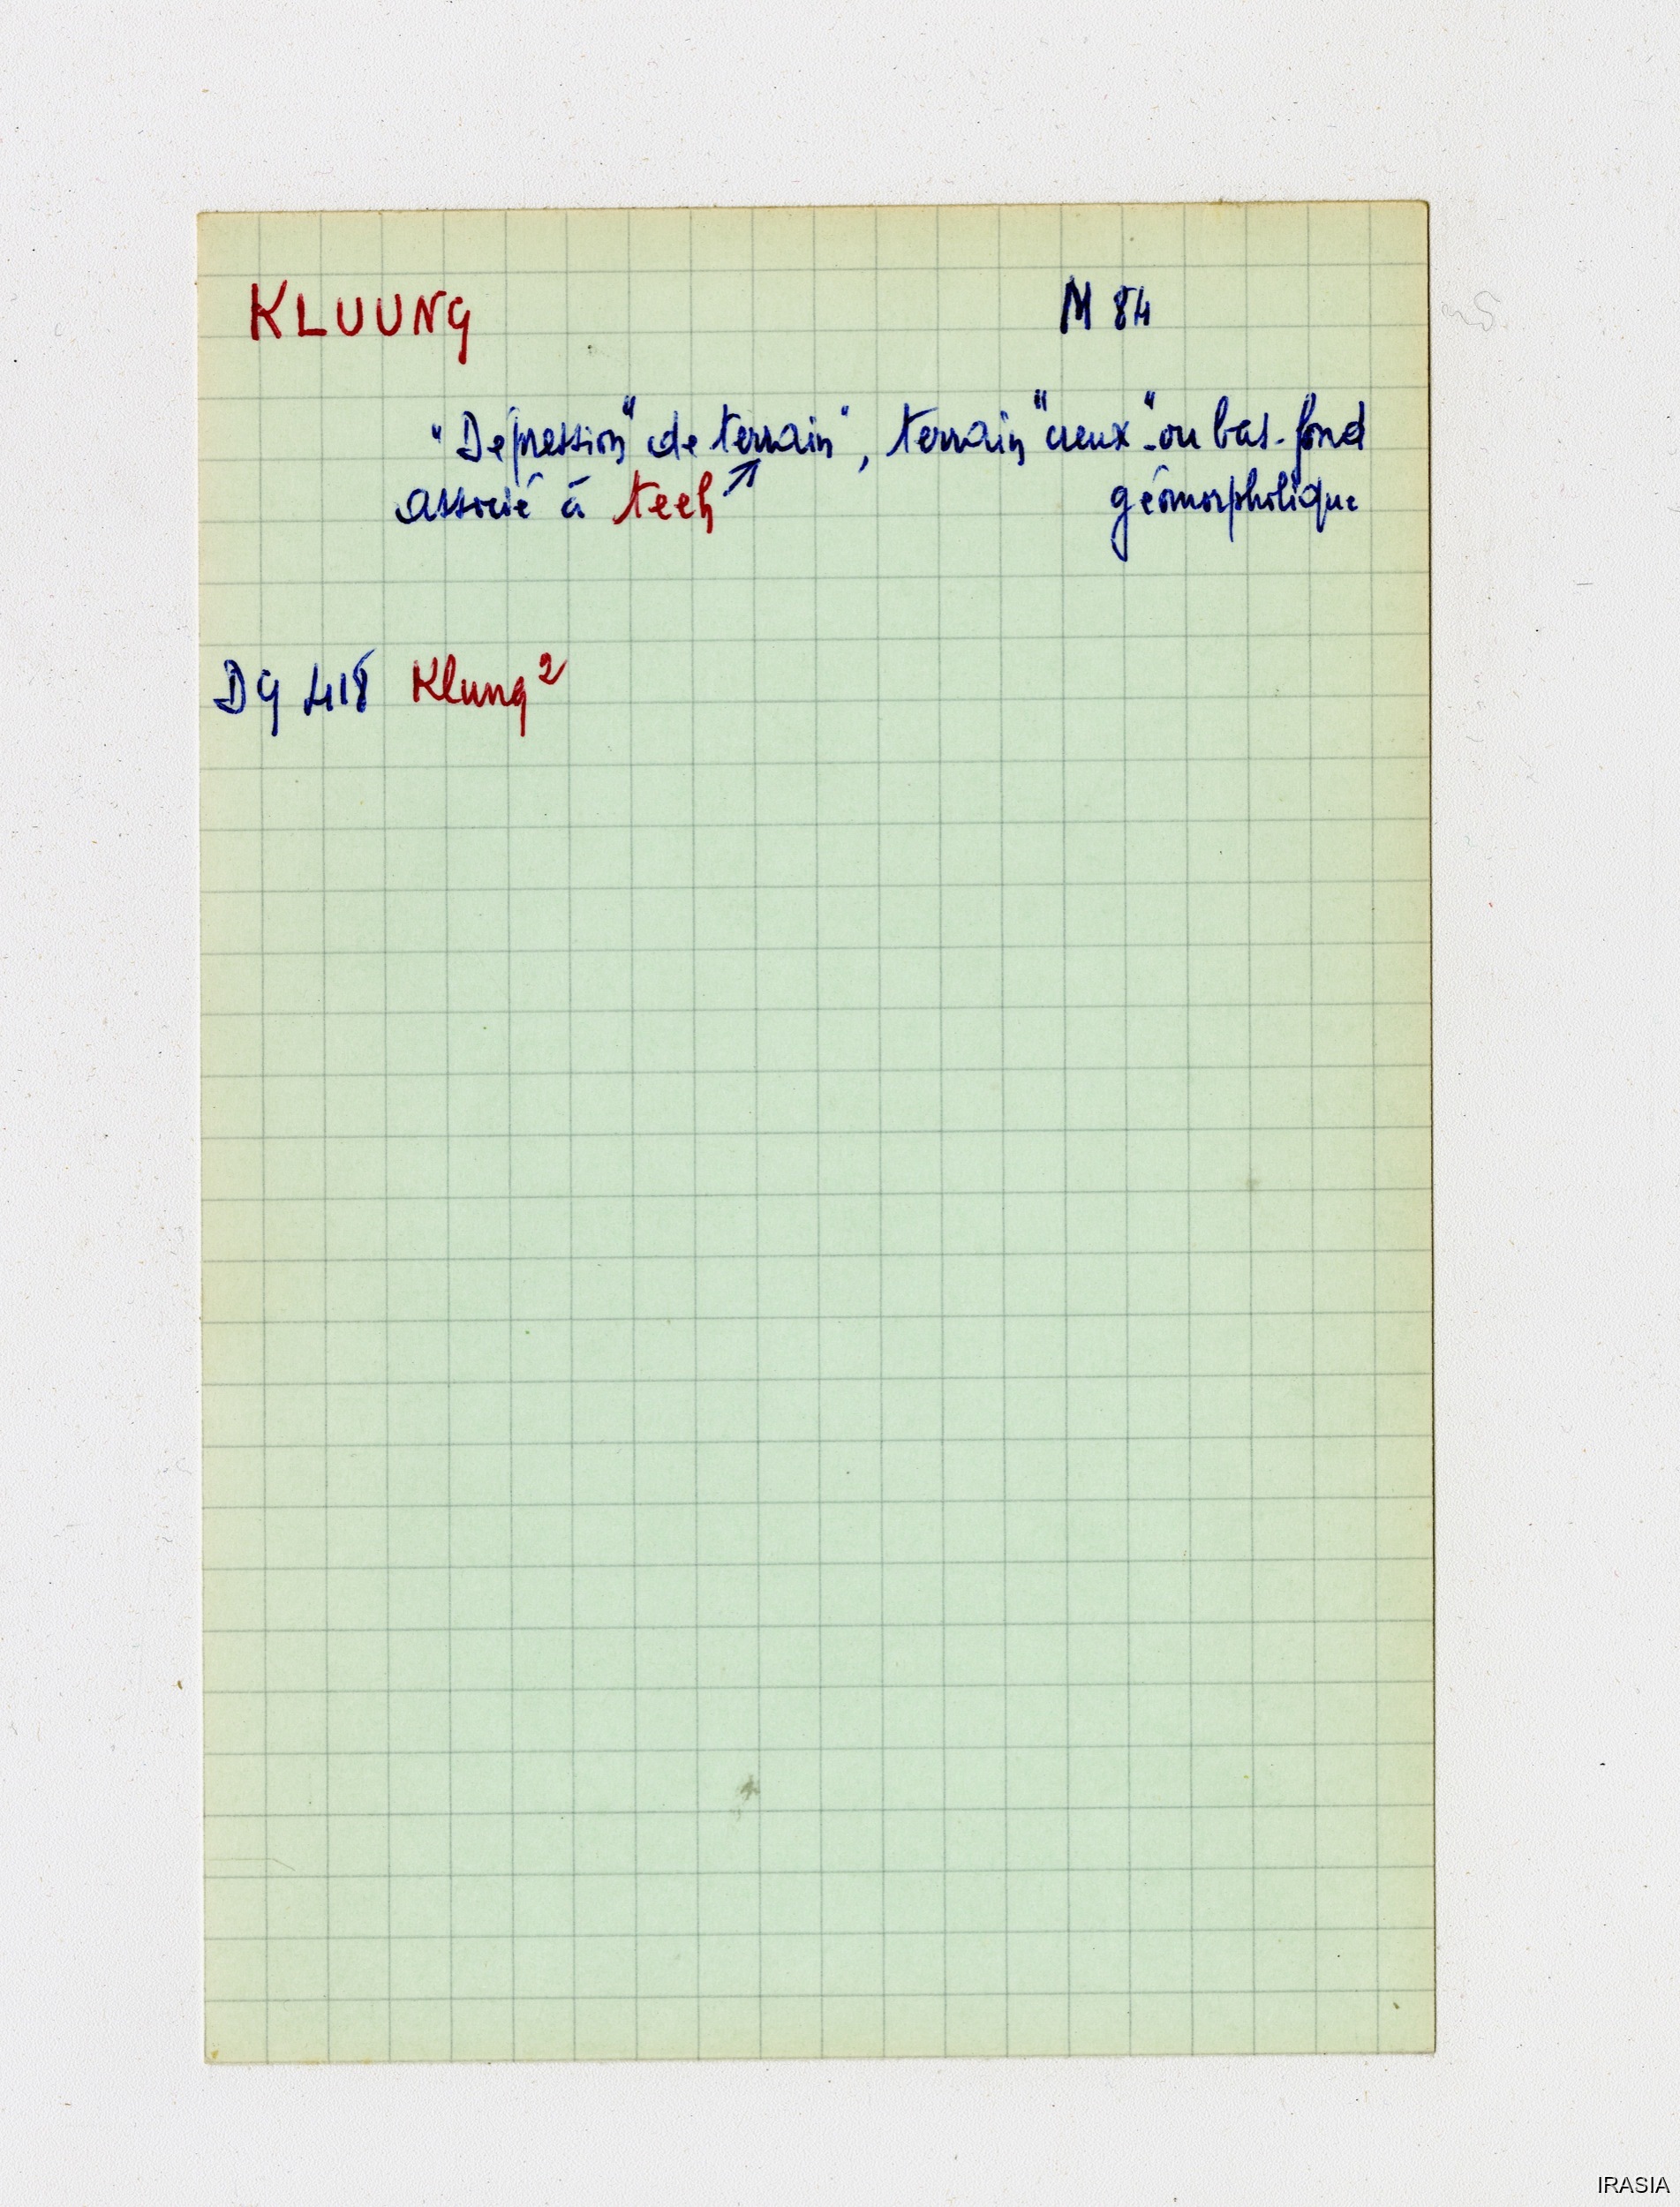 KLUUNG M 84
"Depression" de terrain", terrain "creux" ou bas-fond
associé à teeh ↗ géomorpholique
DG 418 Klung²
IRASIA